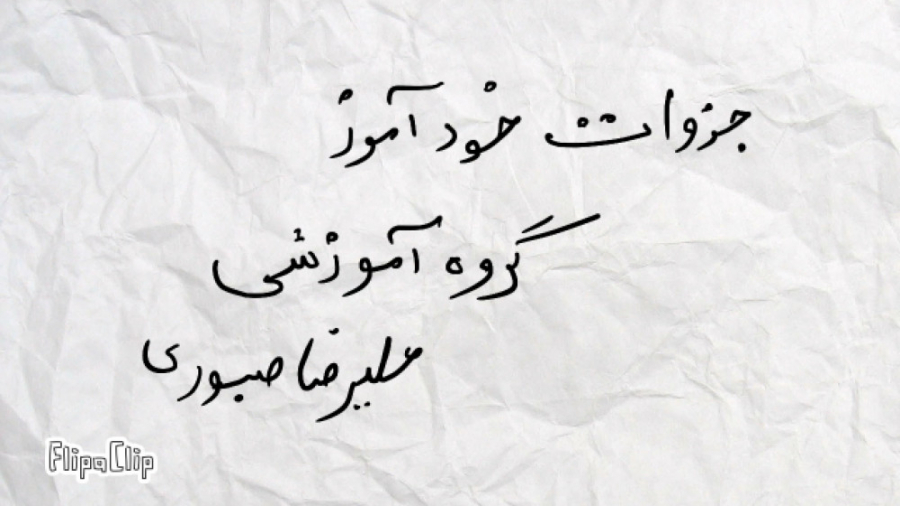 جزوات خود آموز
گروه آموزشی
علیرضا صبوری
FlipaClip